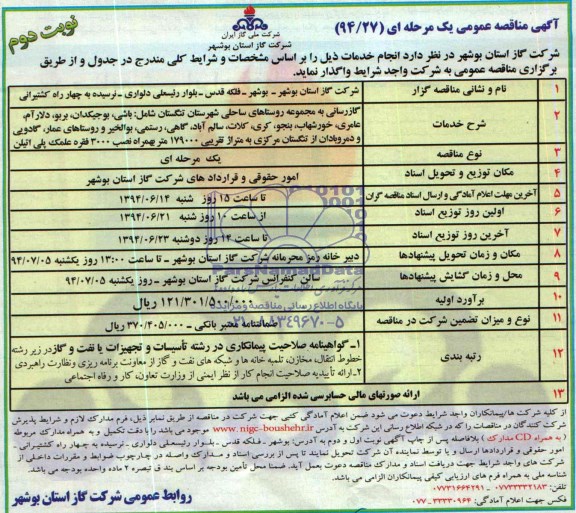 نوبت دوم
شرکت ملی گاز ایران
شرکت گاز استان بوشهر
آگهی مناقصه عمومی یک مرحله ای (۹۴/۲۷)
شرکت گاز استان بوشهر در نظر دارد انجام خدمات ذیل را بر اساس مشخصات و شرایط کلی مندرج در جدول و از طریق
برگزاری مناقصه عمومی به شرکت واجد شرایط واگذار نماید.
۱ نام و نشانی مناقصه گزار شرکت گاز استان بوشهر - بوشهر - فلکه قدس - بلوار رئیسعلی دلواری - نرسیده به چهار راه کشتیرانی
۲ شرح خدمات گازرسانی به مجموعه روستاهای ساحلی شهرستان تنگستان شامل: باشی، بوجیکدان، بریو، دلارآم،
عامری، خورشهاب، بنجو، کری، کلات، سالم آباد، گاهی، رستمی، بوالخیر و روستاهای عمار، گادویی
و دمروبادان از تنگستان مرکزی به متراژ تقریبی ۱۷۹۰۰۰ متر بهمراه نصب ۳۰۰۰ فقره علمک پلی اتیلن
۳ نوع مناقصه یک مرحله ای
۴ مکان توزیع و تحویل اسناد امور حقوقی و قرارداد های شرکت گاز استان بوشهر
۵ آخرین مهلت اعلام آمادگی و ارسال اسناد مناقصه گران تا ساعت ۱۵ روز شنبه ۱۳۹۴/۰۶/۱۴
۶ اولین روز توزیع اسناد از ساعت ۱۰ روز شنبه ۱۳۹۴/۰۶/۲۱
۷ آخرین روز توزیع اسناد تا ساعت ۱۴ روز دوشنبه ۱۳۹۴/۰۶/۲۳
۸ مکان و زمان تحویل پیشنهادها دبیر خانه رمز محرمانه شرکت گاز استان بوشهر - تا ساعت ۱۳:۰۰ روز یکشنبه ۹۴/۰۷/۰۵
۹ محل و زمان گشایش پیشنهادها سالن کنفرانس شرکت گاز استان بوشهر - روز یکشنبه ۹۴/۰۷/۰۵
۱۰ برآورد اولیه ۱۲۱/۳۰۱/۵۰۰/۰۰۰ ریال
۱۱ نوع و میزان تضمین شرکت در مناقصه ضمانتنامه معتبر بانکی - ۳۷۰/۴۰۵/۰۰۰ ریال
۱۲ رتبه بندی ۱- گواهینامه صلاحیت پیمانکاری در رشته تأسیسات و تجهیزات یا نفت و گاز در زیر رشته
خطوط انتقال، مخازن، تلمبه خانه ها و شبکه های نفت و گاز از معاونت برنامه ریزی ونظارت راهبردی
۲- ارائه تأییدیه صلاحیت انجام کار از نظر ایمنی از وزارت تعاون، کار و رفاه اجتماعی
۱۳ ارائه صورتهای مالی حسابرسی شده الزامی می باشد
از کلیه شرکت ها/پیمانکاران واجد شرایط دعوت می شود ضمن اعلام آمادگی کتبی جهت شرکت در مناقصه از طریق نمابر ذیل، فرم مدارک لازم و شرایط پذیرش
شرکت کنندگان در مناقصات را که در شبکه اطلاع رسانی این شرکت به آدرس www.nigc-boushehr.ir موجود می باشد را با دقت تکمیل و به همراه مدارک مربوطه
( به همراه CD مدارک ) بلافاصله پس از چاپ آگهی نوبت اول و دوم به آدرس: بوشهر - فلکه قدس - بلوار رئیسعلی دلواری - نرسیده به چهار راه کشتیرانی -
امور حقوقی و قراردادها ارسال و یا توسط نماینده آن شرکت تحویل نمایند تا پس از بررسی اسناد و مدارک واصله در چارچوب ضوابط و مقررات داخلی از
شرکت های واجد شرایط جهت دریافت اسناد و مدارک مناقصه دعوت بعمل آید. ضمنا محل تأمین بودجه بر اساس بند ق تبصره ۲ ماده واحده بودجه می باشد.
شناسه ملی به همراه فرم های ارزیابی کیفی پیمانکاران الزامی می باشد.
تلفن: ۰۷۷۳۳۳۳۲۱۸۳ - ۰۷۷۳۱۶۶۴۲۹۱
فکس جهت اعلام آمادگی: ۳۳۳۳۰۹۶۴-۰۷۷
روابط عمومی شرکت گاز استان بوشهر
ParsNamadData
پایگاه اطلاع رسانی مناقصه و مزایده
۰۲۱-۸۸۳۴۹۶۷۰-۵